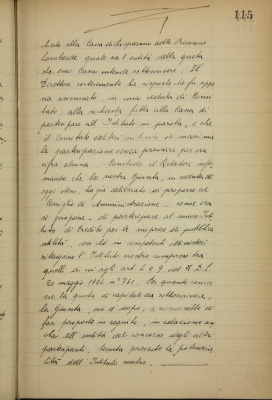 115
dirsi alla Cassa di Risparmio delle Provincie
Lombarde quale sia l'entità della quota
che essa Cassa intende sottoscrivere. Il
Direttore cortesemente ha risposto che fu appe
na accennato, in una seduta di Comi
tato, alla richiesta fatta alla Cassa di
partecipare all'Istituto in parola, e che
il Comitato deliberò in linea di massima
la partecipazione senza precisare per ora
cifra alcuna. Conclude il Relatore infor
mando che la nostra Giunta, in seduta di
oggi stesso, ha già deliberato di proporre al
Consiglio di Amministrazione - come ora
si propone - di partecipare al nuovo Isti
tuto di Credito per le imprese di pubblica
utilità, ove i competenti Ministeri
ritengano l'Istituto nostro compreso tra
quelli di cui agli art. 2 e 9 del R.D.L.
20 maggio 1924 n° 731. Per quanto concer
ne la quota di capitale da sottoscrivere,
la Giunta, ove d'uopo, si riserverebbe di
far proposte in seguito, in relazione an
che all'entità del concorso degli altri
partecipanti, tenuta presente la potenzia
lità dell'Istituto nostro.